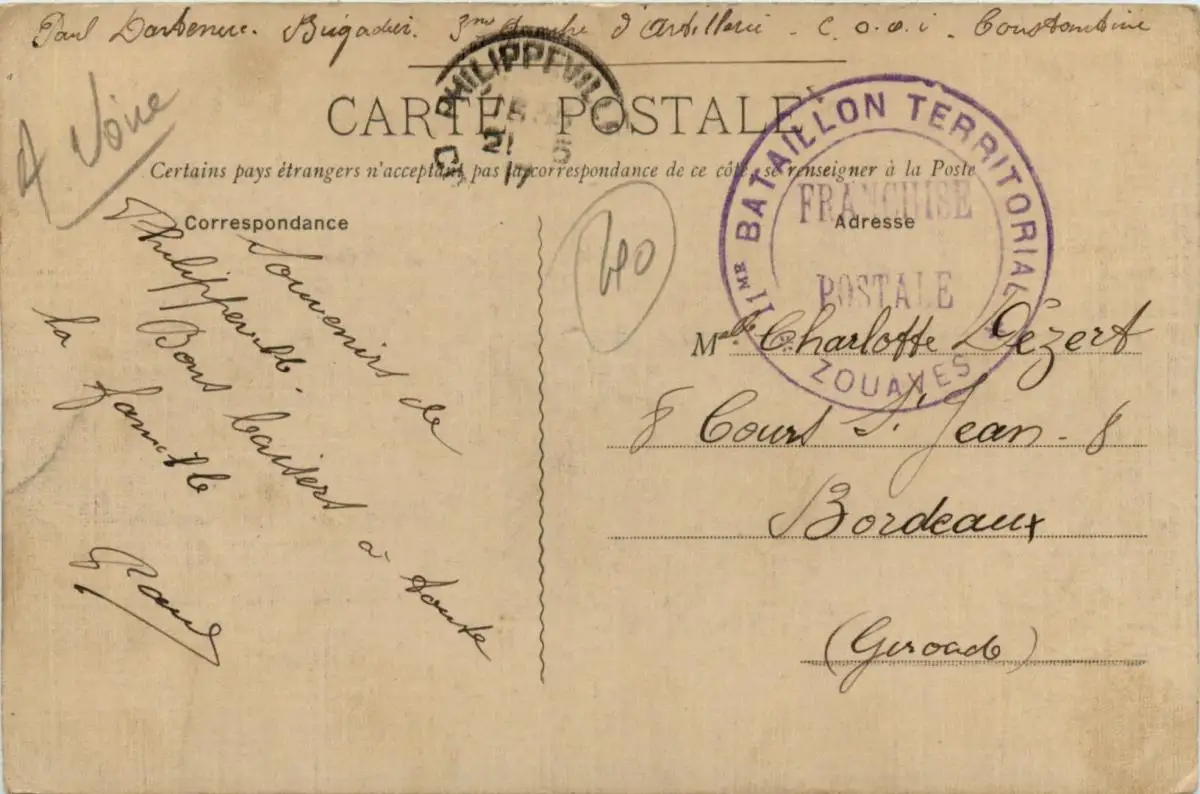 Paul Brigadier. 3me d'Artillerie - C. o. a. i. Constantine
PHILIPPEVILLE
15
21 5
17
CARTE POSTALE
Certains pays étrangers n'acceptant pas la correspondance de ce côté, se renseigner à la Poste
4 Noire
Correspondance
Adresse
40
11me BATAILLON TERRITORIAL
ZOUAVES
FRANCHISE
POSTALE
Souvenirs de
Philippeville.
Bons baisers à toute
la famille
Paul
Melle Charlotte Dézert
8 Cours St Jean - 8
Bordeaux
(Gironde)